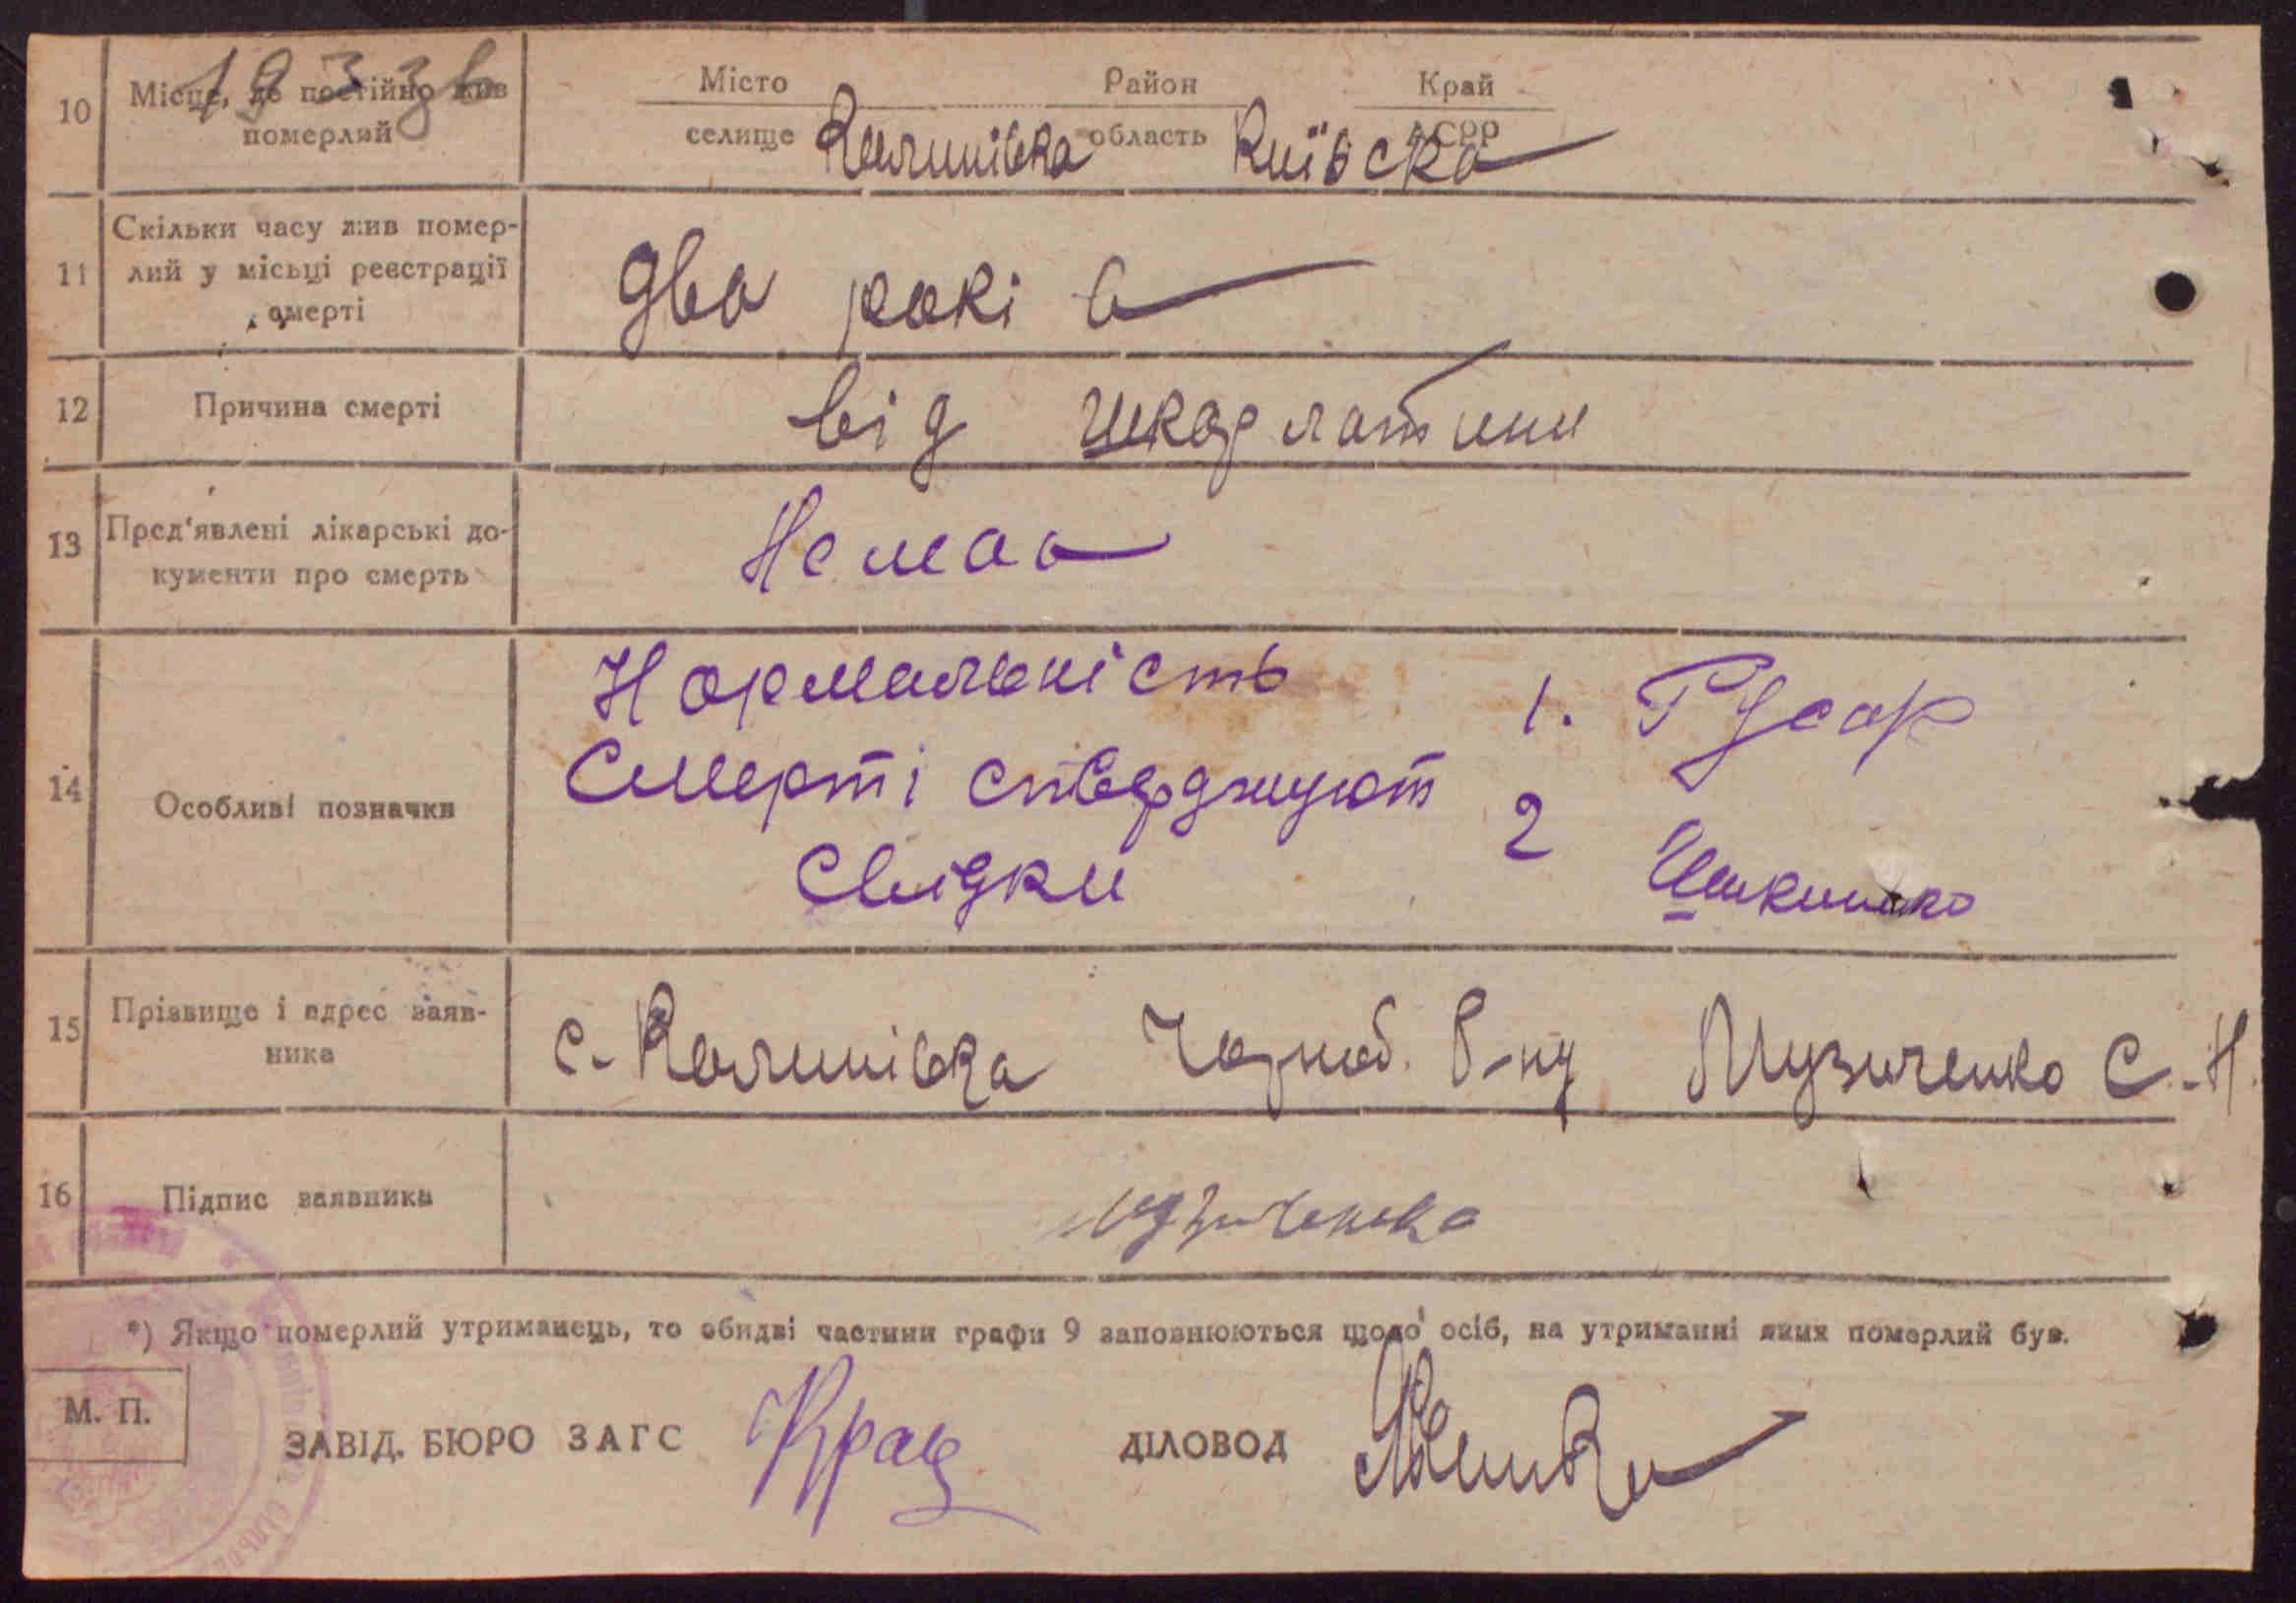 1933 в
10 Місце, де постійно жив Місто Район Край
померлий селище Калинівка область Київска АСРР
Скільки часу жив помер-
11 лий у місьці реєстрації два рокі
смерті
12 Причина смерті від шкарлатини
13 Пред'явлені лікарські до- Немає
кументи про смерть
Нормальність 1. Гусар
14 Особливі позначки Смерті стверджуют 2
Свідки
15 Прізвище і адрес заяв- с-Калинівка Чорноб. Р-ну Музиченко С-Н.
ника
16 Підпис заявника Музиченко
*) Якщо померлий утриманець, то обидві частини графи 9 заповнюються щодо осіб, на утриманні яких померлий був.
М. П.
ЗАВІД. БЮРО ЗАГС ДІЛОВОД